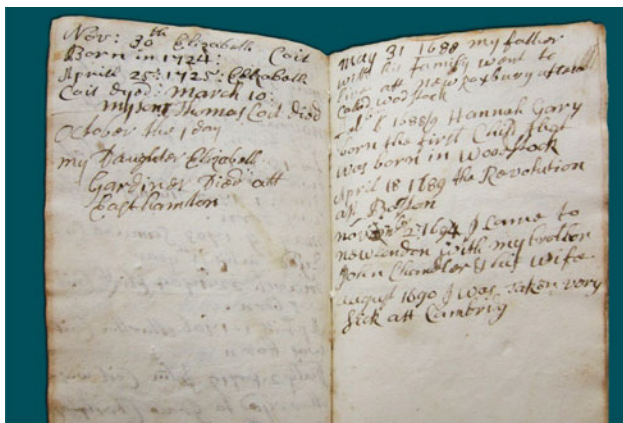 Nov: 30th Elizabeth Coit
Born in 1724:
Aprill 25: 1725: Elizabeth
Coit dyed: march 10:
my son Thomas Coit died
october the 1 day
my Daughter Elizabeth
Gardiner Died att
Easthamton
may 31 1688 my father
with his Family went to
live att new Roxbury afterw
Caled woodstock
1688/9 Hannah Gary
born the first Child that
was born in Woodstock
April 18 1689 the Revolution
att Boston
2 1694 I came to
newlondon with my brother
John Chandler & his wife
august 1690 I was taken very
sick att Cambrig